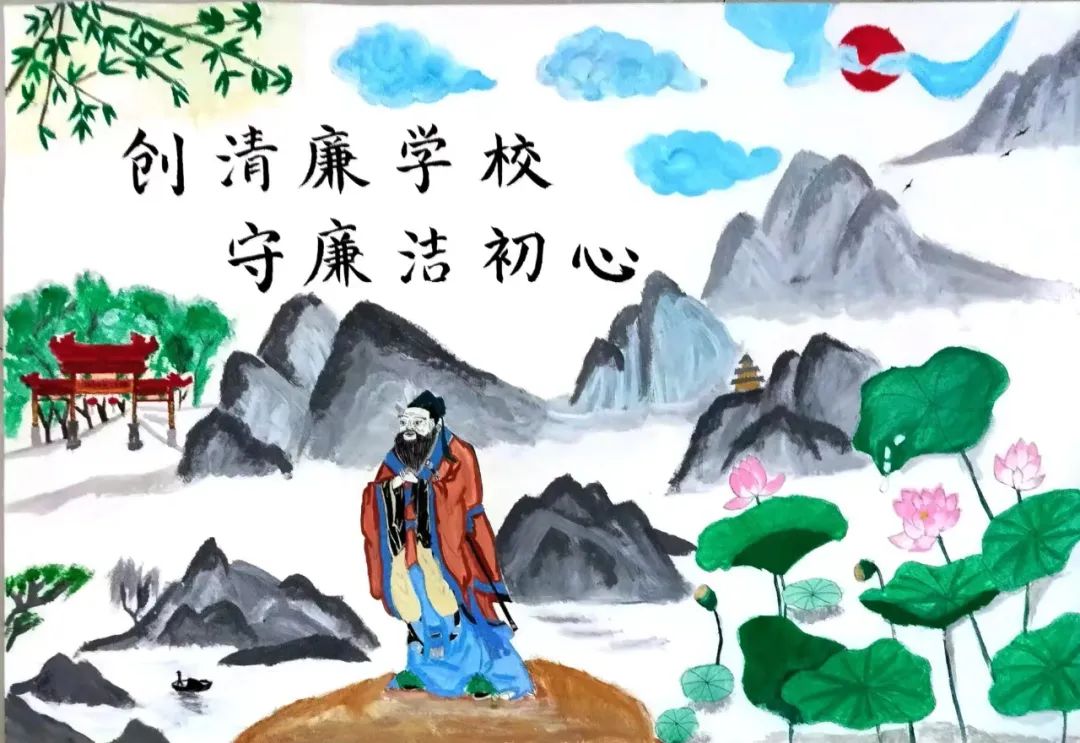 创清廉学校
守廉洁初心